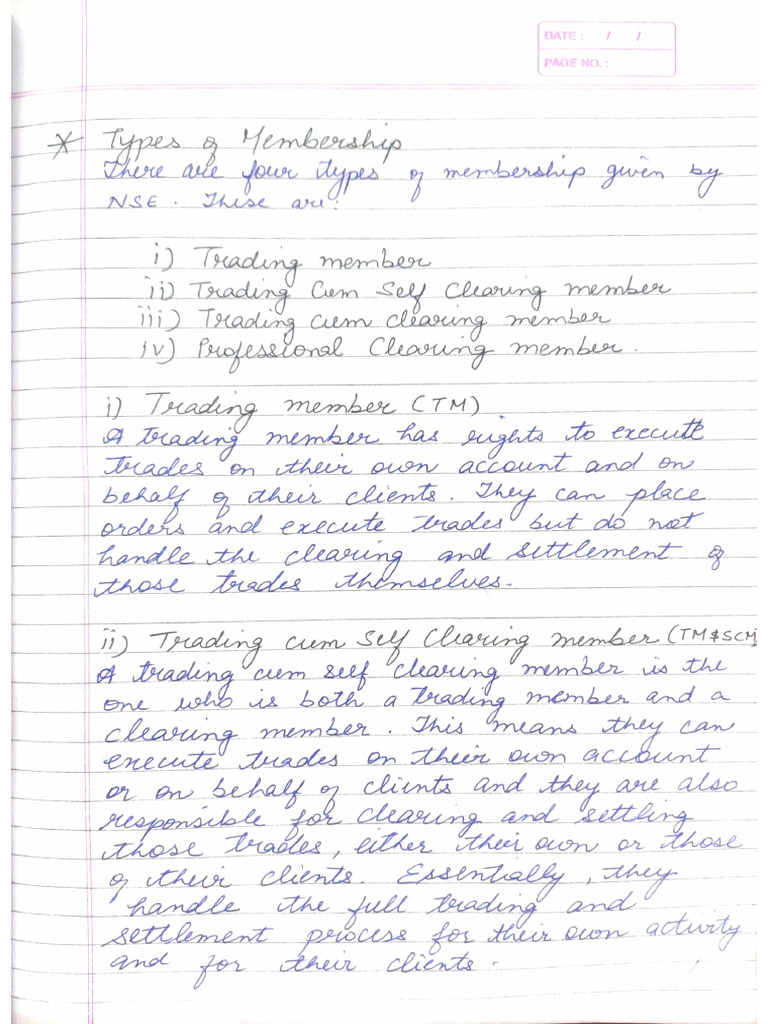 DATE : / /
PAGE NO. :
* Types of Membership
There are four types of membership given by
NSE. These are:
i) Trading member
ii) Trading Cum Self Clearing member
iii) Trading cum clearing member
iv) Professional Clearing member.
i) Trading member (TM)
A trading member has rights to execute
trades on their own account and on
behalf of their clients. They can place
orders and execute trades but do not
handle the clearing and settlement of
those trades themselves.
ii) Trading cum Self Clearing member (TM$SCM)
A trading cum self clearing member is the
one who is both a trading member and a
clearing member. This means they can
execute trades on their own account
or on behalf of clients and they are also
responsible for clearing and settling
those trades, either their own or those
of their clients. Essentially, they
handle the full trading and
settlement process for their own activity
and for their clients.